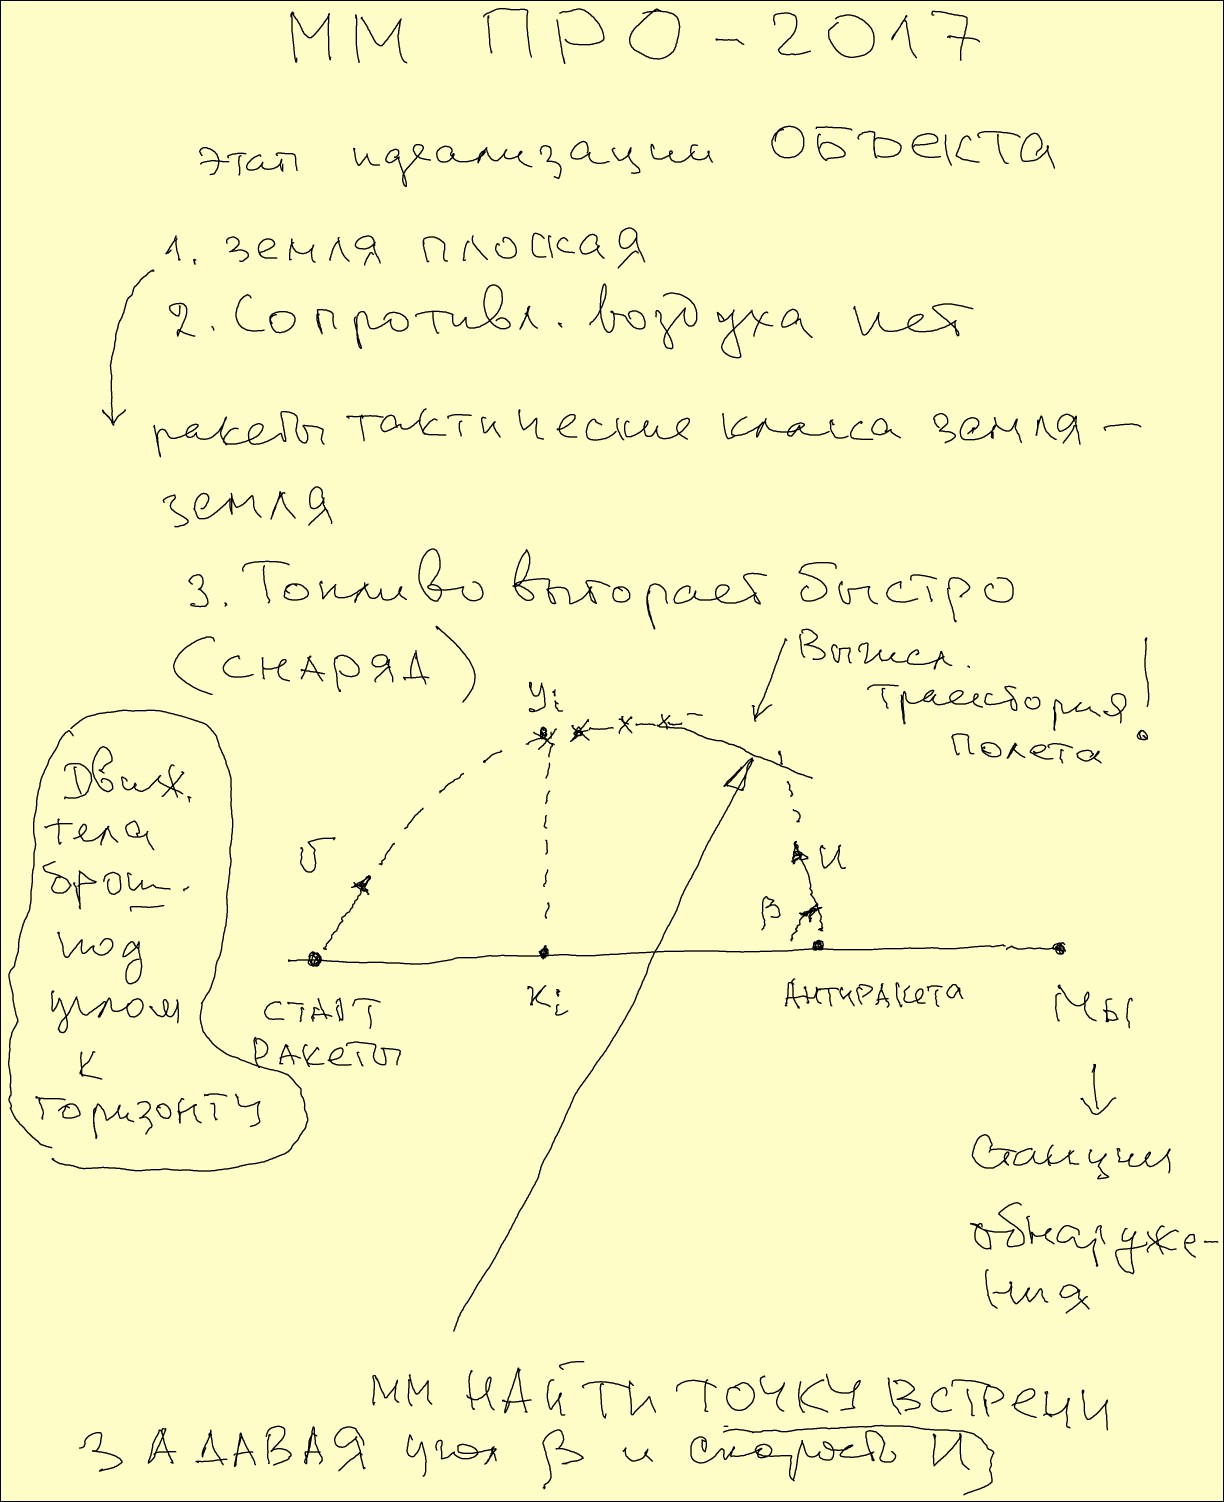 ММ ПРО-2017
этап идеализации ОБЪЕКТА
1. земля плоская
2. Сопротивл. воздуха нет
ракеты тактические класса земля-
земля
3. Топливо выгорает быстро
(СНАРЯД)
Вычисл.
траектория
полета!
yi
Движ.
тела
брош.
под
углом
к
горизонту
v
u
β
СТАРТ
РАКЕТЫ
xi
АНТИРАКЕТА
МЫ
Станции
обнаруже-
ния
ММ НАЙТИ ТОЧКУ ВСТРЕЧИ
ЗАДАВАЯ угол β и скорость U